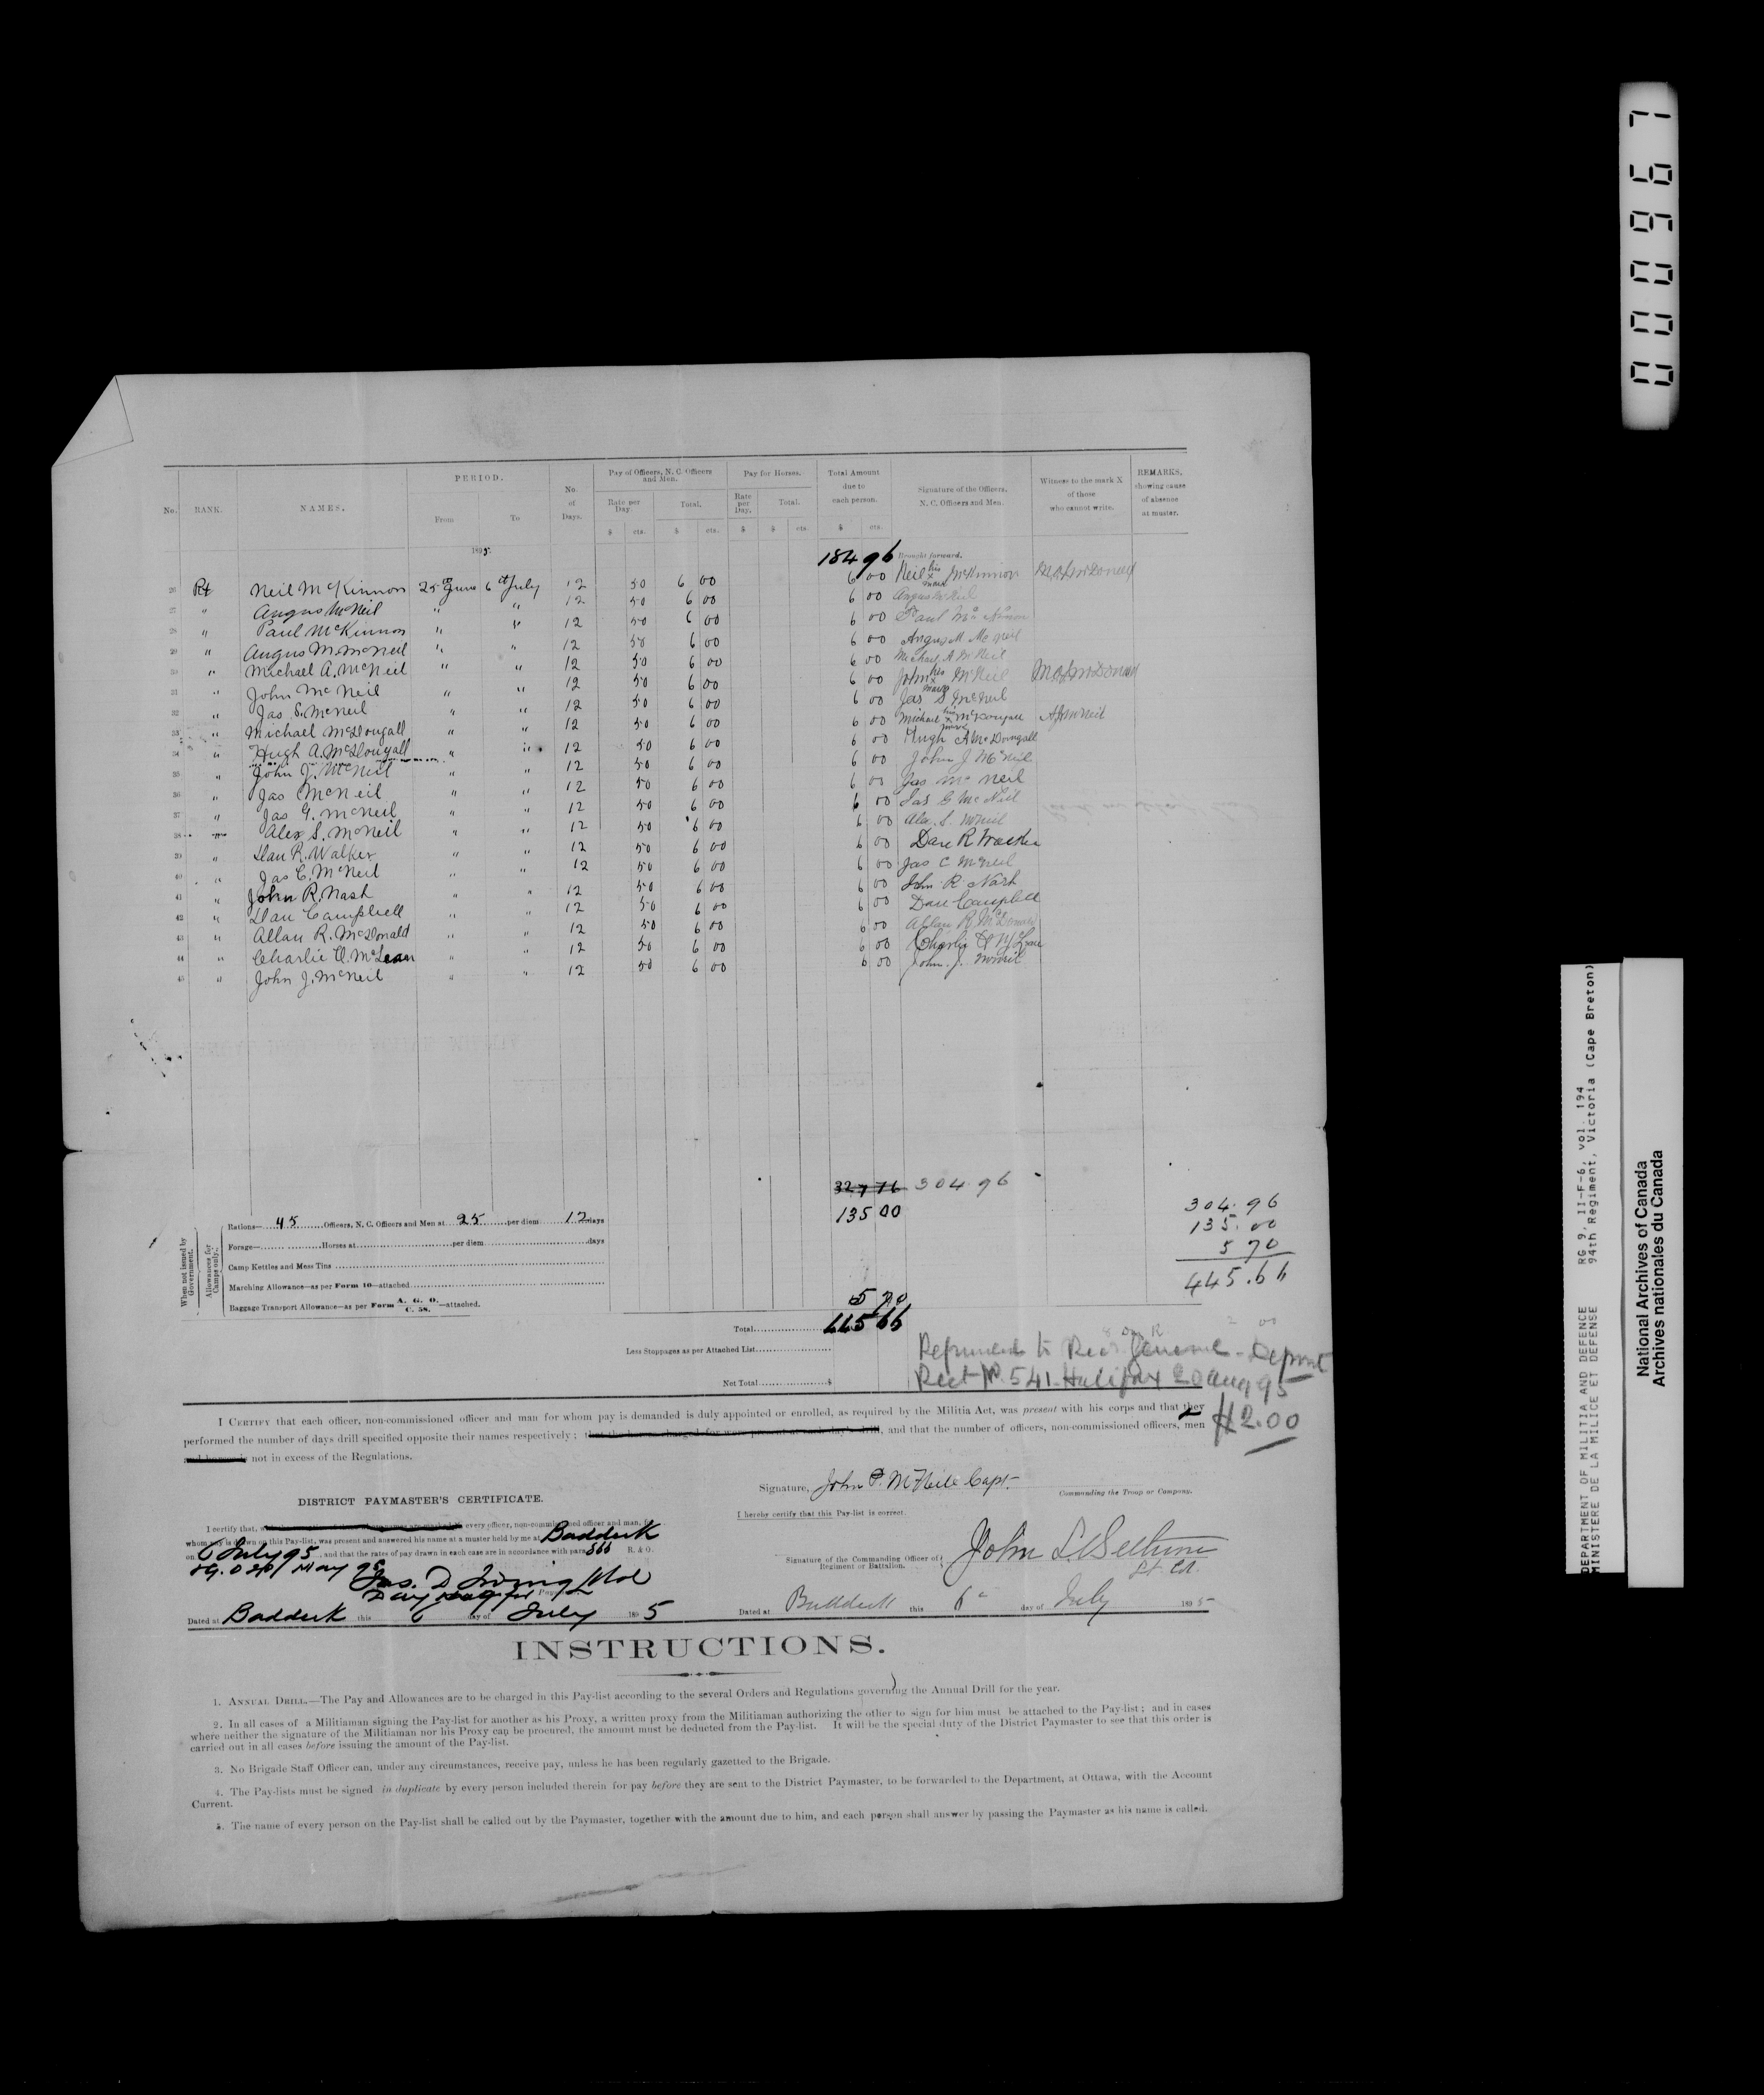 000967
No. RANK. NAMES. PERIOD. From To No. of Days. Pay of Officers, N. C. Officers and Men. Rate per Day Total. Pay for Horses. Rate per Day. Total. Total Amount due to each person. Signature of the Officers, N. C. Officers and Men. Witness to the mark X of those who cannot write. REMARKS, showing cause of absence at muster.
$ cts. $ cts. $ $ cts. $ cts.
1895 184 96 Brought forward.
26 Pt Neil McKinnon 25th June 6th July 12 50 6 00 6 00 Neil his x mark McKinnon
27 " Angus McNeil " " 12 50 6 00 6 00 Angus McNeil
28 " Paul McKinnon " " 12 50 6 00 6 00 Paul McKinnon
29 " Angus M. McNeil " " 12 50 6 00 6 00 Angus M. McNeil
30 " Michael A. McNeil " " 12 50 6 00 6 00 Michael A McNeil
31 " John McNeil " " 12 50 6 00 6 00 John his x mark McNeil
32 " Jas. S. McNeil " " 12 50 6 00 6 00 Jas S McNeil
33 " Michael McDougall " " 12 50 6 00 6 00 Michael his x mark McDougall
34 " Hugh A. McDougall " " 12 50 6 00 6 00 Hugh A McDougall
35 " John J. McNeil " " 12 50 6 00 6 00 John J McNeil
36 " Jas McNeil " " 12 50 6 00 6 00 Jas McNeil
37 " Jas G. McNeil " " 12 50 6 00 6 00 Jas G McNeil
38 " Alex S. McNeil " " 12 50 6 00 6 00 Alex. S. McNeil
39 " Dan R. Walker " " 12 50 6 00 6 00 Dan R Walker
40 " Jas C. McNeil " " 12 50 6 00 6 00 Jas C McNeil
41 " John R. Nash " " 12 50 6 00 6 00 John R. Nash
42 " Dan Campbell " " 12 50 6 00 6 00 Dan Campbell
43 " Allan R. McDonald " " 12 50 6 00 6 00 Allan R McDonald
44 " Charlie McLean " " 12 50 6 00 6 00 Charlie McLean
45 " John J. McNeil " " 12 50 6 00 6 00 John. J. McNeil
327 76 304.96
When not issued by Government.
Allowances for Camps only.
Rations—45 Officers, N. C. Officers and Men at 25 per diem 12 days 135 00
Forage— Horses at per diem days
Camp Kettles and Mess Tins
Marching Allowance—as per Form 10—attached
Baggage Transport Allowance—as per Form A. G. O. C. 58. —attached. 5 70
304.96
135.00
5 70
445.66
Total 445 66
Less Stoppages as per Attached List
Net Total $
Refunded to Rec. General - Deposit
Rect No. 541 - Halifax 20 Aug 95
$2.00
I CERTIFY that each officer, non-commissioned officer and man for whom pay is demanded is duly appointed or enrolled, as required by the Militia Act, was present with his corps and that they
performed the number of days drill specified opposite their names respectively; that the horses charged for were present at each day's drill, and that the number of officers, non-commissioned officers, men
and horses is not in excess of the Regulations.
Signature, John P. McNeil Capt.
Commanding the Troop or Company.
DISTRICT PAYMASTER'S CERTIFICATE.
I certify that, every officer, non-commissioned officer and man, for
whom pay is drawn on this Pay-list, was present and answered his name at a muster held by me at Baddeck
on 6 July 95, and that the rates of pay drawn in each case are in accordance with para R. & O.
May 95
Jas. D Irving
Dated at Baddeck this 6 day of July 1895
I hereby certify that this Pay-list is correct.
Signature of the Commanding Officer of Regiment or Battalion. John L Bethune
Lt. Col.
Dated at Baddeck this 6th day of July 1895
INSTRUCTIONS.
1. ANNUAL DRILL.—The Pay and Allowances are to be charged in this Pay-list according to the several Orders and Regulations governing the Annual Drill for the year.
2. In all cases of a Militiaman signing the Pay-list for another as his Proxy, a written proxy from the Militiaman authorizing the other to sign for him must be attached to the Pay-list; and in cases
where neither the signature of the Militiaman nor his Proxy cap be procured, the amount must be deducted from the Pay-list. It will be the special duty of the District Paymaster to see that this order is
carried out in all cases before issuing the amount of the Pay-list.
3. No Brigade Staff Officer can, under any circumstances, receive pay, unless he has been regularly gazetted to the Brigade.
4. The Pay-lists must be signed in duplicate by every person included therein for pay before they are sent to the District Paymaster, to be forwarded to the Department, at Ottawa, with the Account
Current.
5. The name of every person on the Pay-list shall be called out by the Paymaster, together with the amount due to him, and each person shall answer by passing the Paymaster as his name is called.
DEPARTMENT OF MILITIA AND DEFENCE RG 9, II-F-6, vol. 194
MINISTERE DE LA MILICE ET DEFENSE 94th Regiment, Victoria (Cape Breton)
National Archives of Canada
Archives nationales du Canada